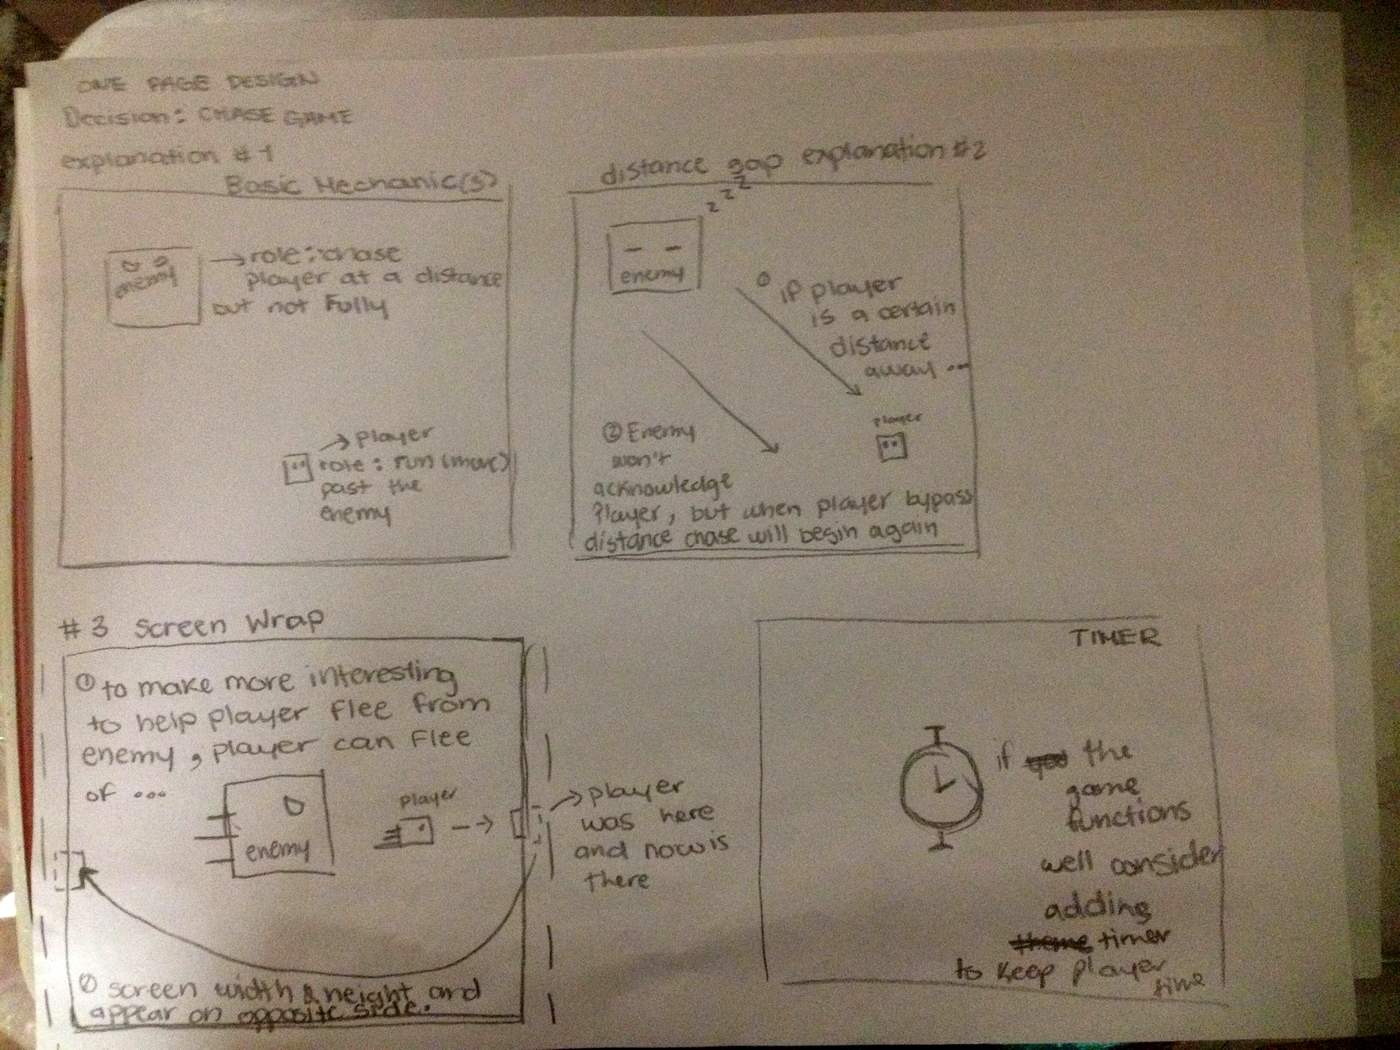 ONE PAGE DESIGN
Decision: CHASE GAME
explanation #1
Basic Mechanic(s)
enemy
→ role: chase
player at a distance
but not Fully
→ player
role: run (move)
past the
enemy
distance gap explanation #2
z z z
enemy
① if player
is a certain
distance
away ...
player
② Enemy
won't
acknowledge
Player, but when player bypass
distance chase will begin again
#3 Screen Wrap
① to make more interesting
to help player flee from
enemy, player can flee
of ...
enemy
player
→ player
was here
and now is
there
② screen width & height and
appear on opposite side.
TIMER
if the
game
functions
well consider
adding
timer
to keep player
time